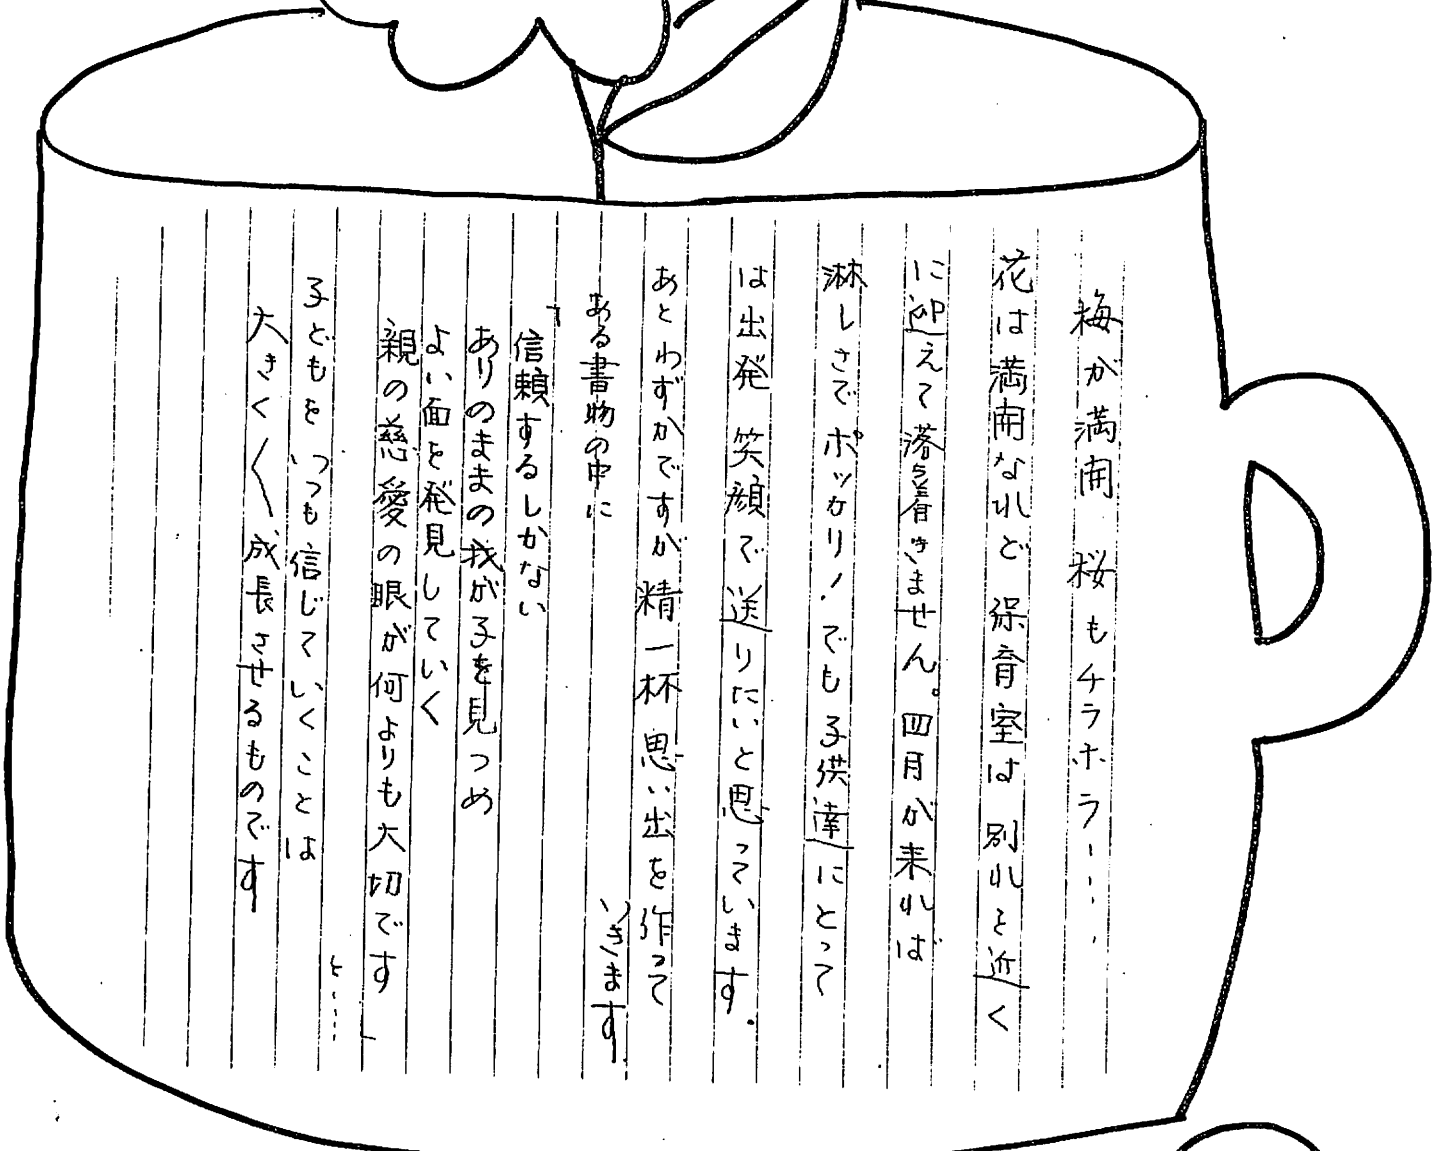 梅が満開 桜もチラホラ……
花は満開なれど 保育室は 別れを近く
に迎えて落ち着きません。四月が来れば
淋しさでポッカリ!でも子供達にとって
は出発 笑顔で送りたいと思っています.
あとわずかですが精一杯思い出を作って
いきます.
ある書物の中に
「信頼するしかない
ありのままの我が子を見つめ
よい面を発見していく
親の慈愛の眼が何よりも大切です」
と……
子どもをいつも信じていくことは
大きく〱成長させるものです